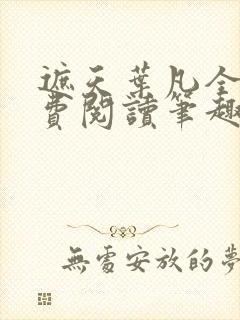 遮天葉凡全
費閱讀筆趣
無處安放的夢